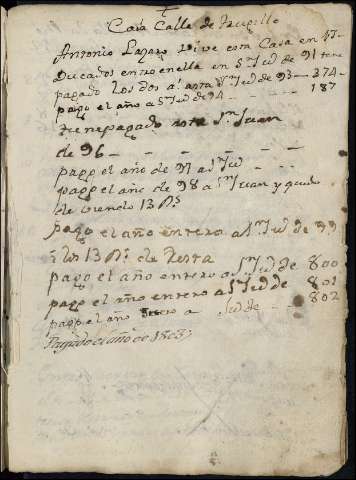 Casa Calle de Trugillo
Antonio Lazaro vive esta Casa en 17
Ducados entro en ella en Sn Jud de 91 tiene
pagado los dos asta Sn Jud de 93 — 374
pago el año a Sn Jud de 94 — 187
tiene pagado asta Sn Juan
de 96
pago el año de 97 a Sn Jud
pago el año de 98 a Sn Juan y quedo
deviendo 13 Rs
pago el año entero a Sn Jud de 99
i los 13 Rs de Resta
pago el año entero a Sn Jud de 800
pago el año entero a Sn Jud de 801
pago el año a Jud de 802
Pagado el año de 1803